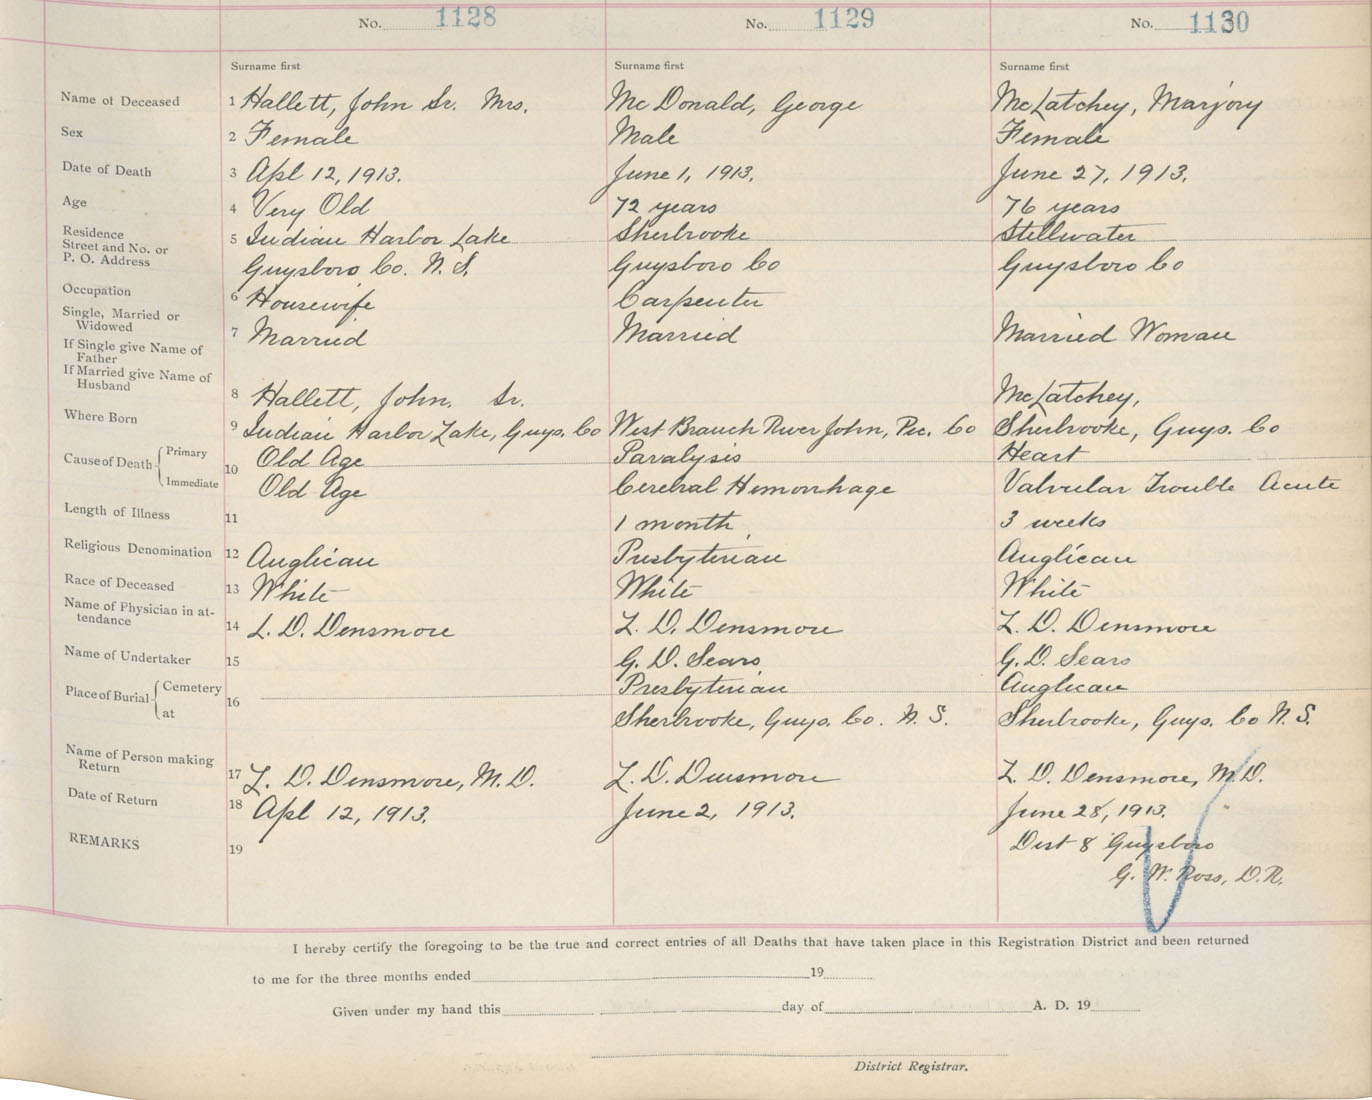 No. 1128 No. 1129 No. 1130
Surname first Surname first Surname first
Name of Deceased 1 Hallett, John Sr. Mrs. McDonald, George McLatchey, Marjory
Sex 2 Female Male Female
Date of Death 3 Apl 12, 1913. June 1, 1913. June 27, 1913.
Age 4 Very Old 72 years 76 years
Residence 5 Indian Harbor Lake Sherbrooke Stillwater
Street and No. or
P. O. Address Guysboro Co. N. S. Guysboro Co Guysboro Co
Occupation 6 Housewife Carpenter
Single, Married or
Widowed 7 Married Married Married Woman
If Single give Name of
Father
If Married give Name of
Husband 8 Hallett, John. Sr. McLatchey,
Where Born 9 Indian Harbor Lake, Guys. Co West Branch River John, Pic. Co Sherbrooke, Guys. Co
Cause of Death Primary 10 Old Age Paralysis Heart
Immediate Old Age Cerebral Hemorrhage Valvular Trouble Acute
Length of Illness 11 1 month 3 weeks
Religious Denomination 12 Anglican Presbyterian Anglican
Race of Deceased 13 White White White
Name of Physician in at-
tendance 14 L. D. Densmore L. D. Densmore L. D. Densmore
Name of Undertaker 15 G. D. Sears G. D. Sears
Place of Burial Cemetery 16 Presbyterian Anglican
at Sherbrooke, Guys. Co. N. S. Sherbrooke, Guys. Co N. S.
Name of Person making
Return 17 L. D. Densmore, M.D. L. D. Densmore L. D. Densmore, M.D.
Date of Return 18 Apl 12, 1913. June 2, 1913. June 28, 1913.
REMARKS 19 Dist 8 Guysboro
G. W. Ross, D.R.
I hereby certify the foregoing to be the true and correct entries of all Deaths that have taken place in this Registration District and been returned
to me for the three months ended 19
Given under my hand this day of A. D. 19
District Registrar.